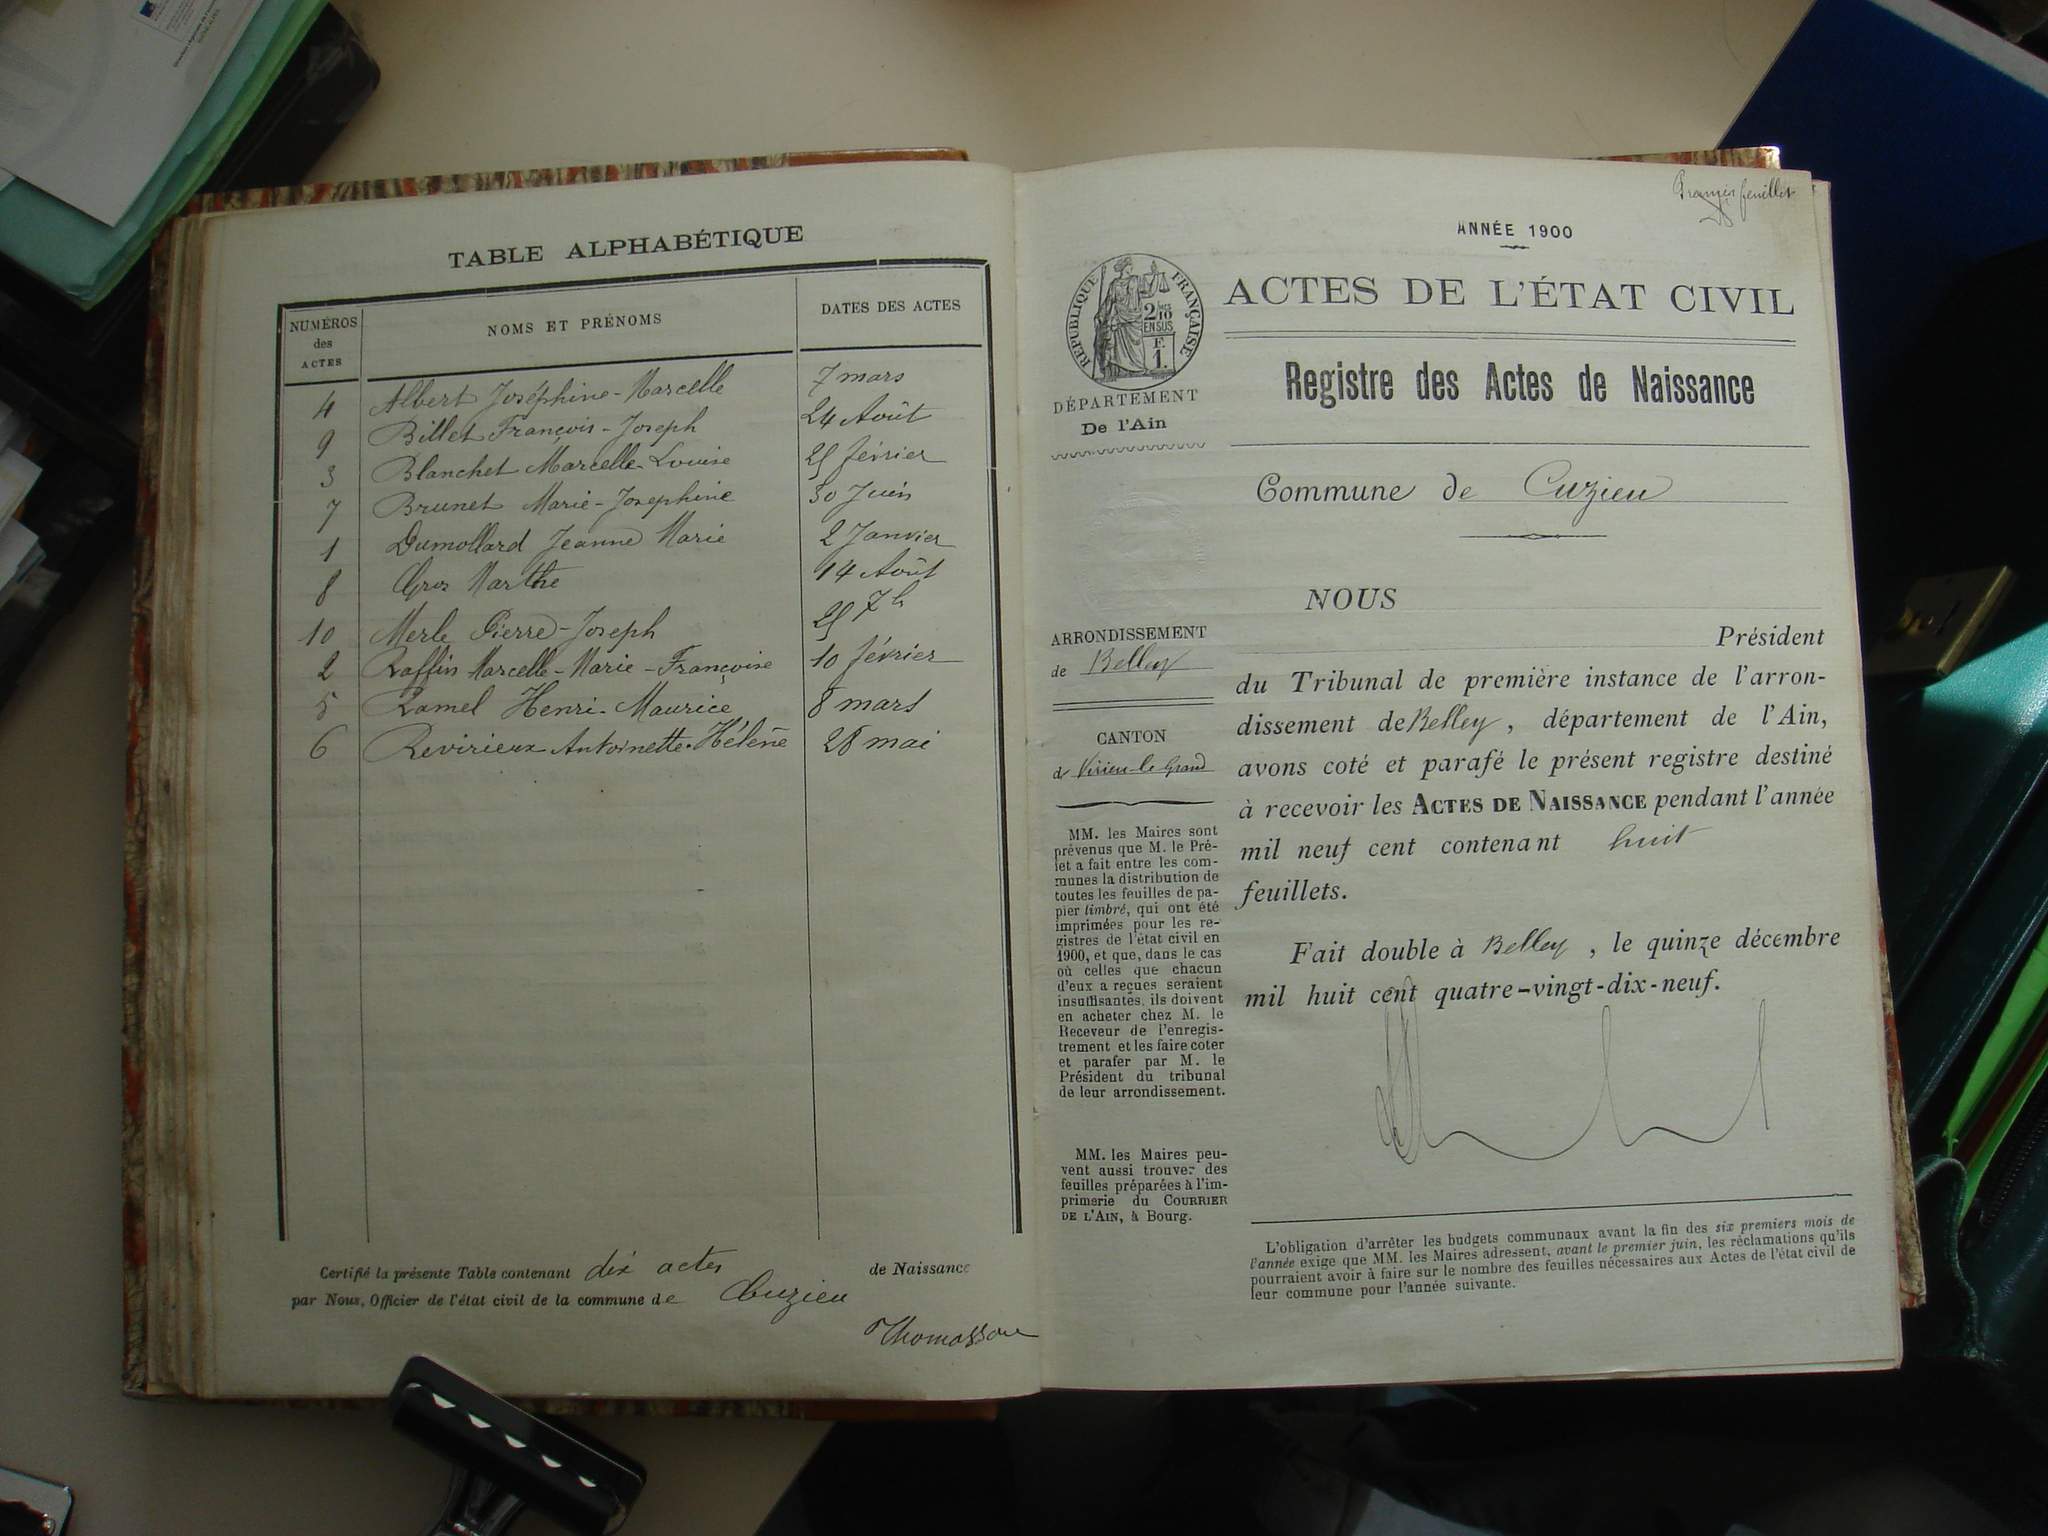 TABLE ALPHABÉTIQUE
NUMÉROS
des
ACTES
NOMS ET PRÉNOMS
DATES DES ACTES
4 Albert Joséphine-Marcelle 7 mars
9 Billet François-Joseph 24 Août
3 Blanchet Marcelle-Louise 25 février
7 Brunet Marie-Josephine 30 Juin
1 Dumollard Jeanne Marie 2 Janvier
8 Gros Marthe 14 Août
10 Merle Pierre-Joseph 25 7b
2 Raffin Marcelle-Marie-Françoise 10 février
5 Ramel Henri-Maurice 8 mars
6 Revirieux Antoinette-Hélène 28 mai
Certifié la présente Table contenant dix actes de Naissance
par Nous, Officier de l'état civil de la commune de Cuzieu
Thomasson
Premier feuillet
ANNÉE 1900
RÉPUBLIQUE FRANÇAISE
2/10
EN SUS
F.
1.
ACTES DE L'ÉTAT CIVIL
DÉPARTEMENT
De l'Ain
Registre des Actes de Naissance
Commune de Cuzieu
ARRONDISSEMENT
de Belley
CANTON
de Virieu-le-Grand
MM. les Maires sont
prévenus que M. le Pré-
fet a fait entre les com-
munes la distribution de
toutes les feuilles de pa-
pier timbré, qui ont été
imprimées pour les re-
gistres de l'état civil en
1900, et que, dans le cas
où celles que chacun
d'eux a reçues seraient
insuffisantes, ils doivent
en acheter chez M. le
Receveur de l'enregis-
trement et les faire coter
et parafer par M. le
Président du tribunal
de leur arrondissement.
MM. les Maires peu-
vent aussi trouver des
feuilles préparées à l'im-
primerie du COURRIER
DE L'AIN, à Bourg.
NOUS
Président
du Tribunal de première instance de l'arron-
dissement de Belley, département de l'Ain,
avons coté et parafé le présent registre destiné
à recevoir les ACTES DE NAISSANCE pendant l'année
mil neuf cent contenant huit
feuillets.
Fait double à Belley, le quinze décembre
mil huit cent quatre-vingt-dix-neuf.
L'obligation d'arrêter les budgets communaux avant la fin des six premiers mois de
l'année exige que MM. les Maires adressent, avant le premier juin, les réclamations qu'ils
pourraient avoir à faire sur le nombre des feuilles nécessaires aux Actes de l'état civil de
leur commune pour l'année suivante.